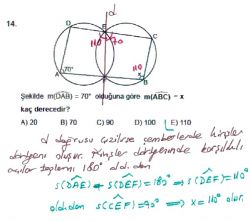 14.
d
D
E
110
70
C
A
70°
110
x
B
Şekilde m(DAB) = 70° olduğuna göre m(ABC) = x
kaç derecedir?
A) 20 B) 70 C) 90 D) 100 E) 110
d doğrusu çizilirse çemberlerde kirişler
dörtgeni oluşur. Kirişler dörtgeninde karşılıklı
açılar toplamı 180° olduğundan
s(DAE) + s(DEF) = 180° ⇒ s(DEF) = 110°
olduğundan s(CEF) = 70° ⇒ x = 110° olur